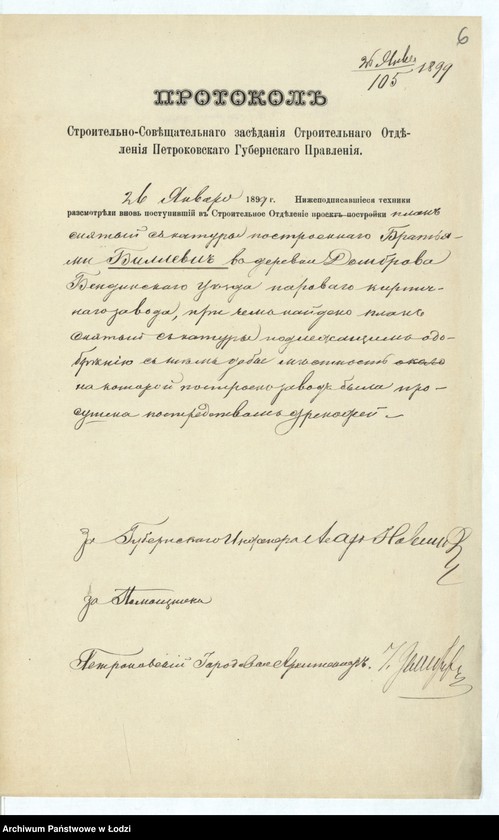 6
26 Янв. 1899
105
ПРОТОКОЛЪ
Строительно-Совѣщательнаго засѣданія Строительнаго Отдѣ-
ленія Петроковскаго Губернскаго Правленія.
26 Января 1899 г. Нижеподписавшіеся техники
разсмотрѣли вновь поступившій въ Строительное Отдѣленіе проектъ постройки планъ
снятый съ натуры построеннаго Братья-
ми Биллевичъ въ деревни Домброва
Бендинскаго уѣзда пароваго кирпич-
наго завода, при чемъ найдено планъ
снятый съ натуры подлежащимъ одо-
бренію съ тѣмъ чтобы мѣстность около
на которой построенъ заводъ была про-
сушена посредствомъ дренажей
За Губернскаго Инженера
За Помощника
Петроковскій Городовой Архитекторъ
Archiwum Państwowe w Łodzi